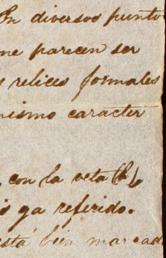 En diversos punto
me parecen ser
s relices formales
mismo caracter
con la veta (b)
is ya referido.
está bien marcad